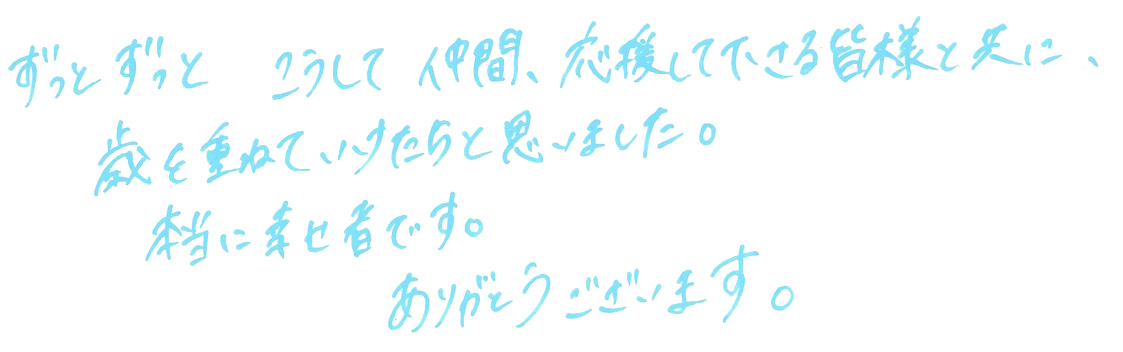 ずっとずっと こうして 仲間、応援して下さる皆様と共に、
歳を重ねていけたらと思いました。
本当に幸せ者です。
ありがとうございます。